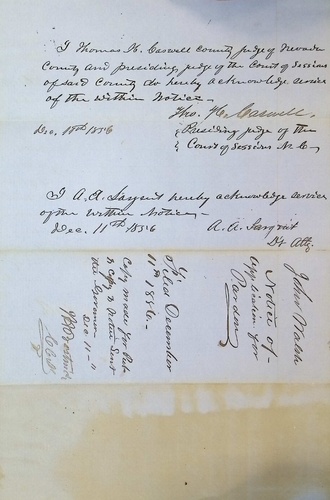 I Thomas H. Caswell county judge of Nevada
County and presiding judge of the Court of Sessions
of said County do hereby acknowledge service
of the within Notice —
Tho. H. Caswell.
Dec. 11th 1856
Presiding judge of the
Court of Sessions N. C.
I A. A. Sargent hereby acknowledge service
of the within Notice —
Dec. 11th 1856
A. A. Sargent
Dt Atty
John Walsh
Notice of
Application for
Pardon
Filed December
11th 1856.
Copy made for Pub.
& Copy & Notice Sent
the Governor
Dec. 11
Clerk